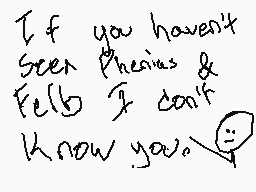 If you haven't
seen Phenius &
Felb I don't
know you.